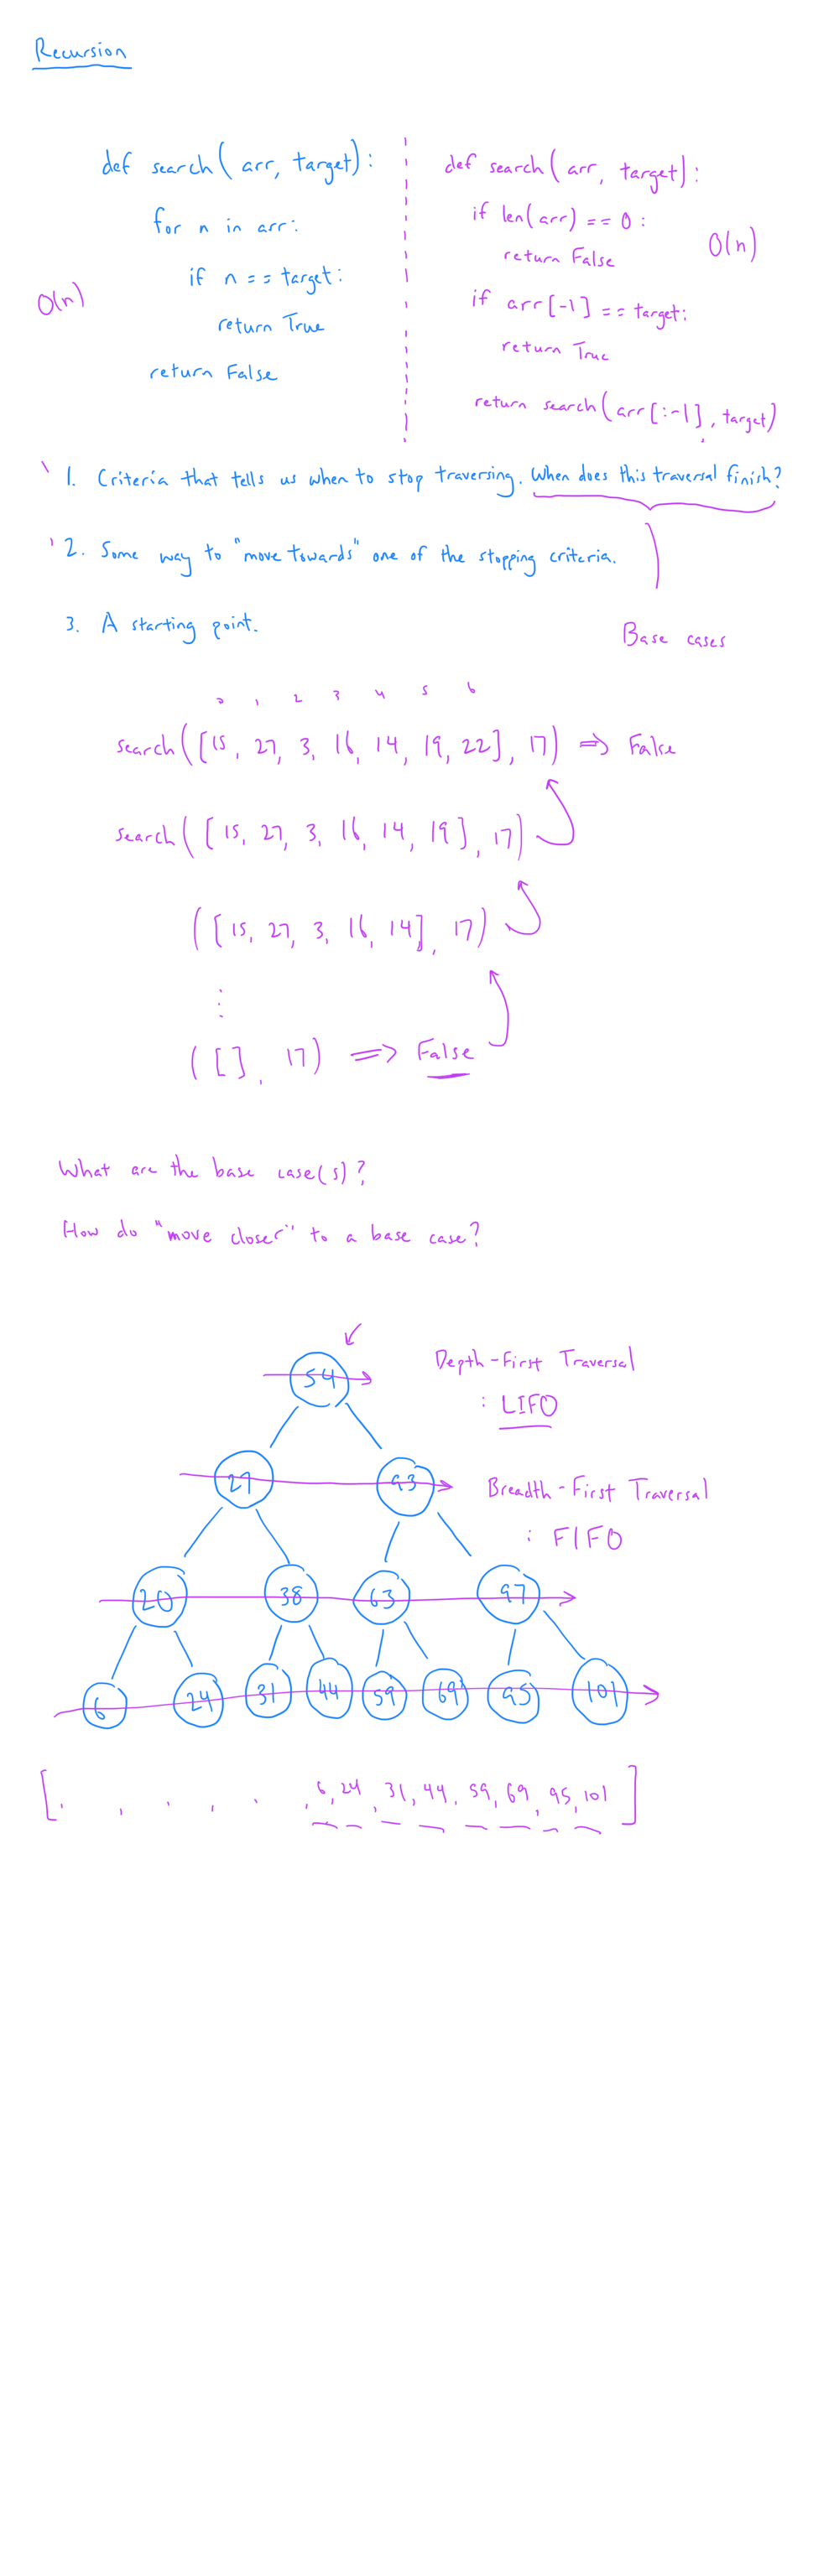 Recursion
def search(arr, target):
for n in arr:
if n == target:
return True
return False
O(n)
def search(arr, target):
if len(arr) == 0:
return False
if arr[-1] == target:
return True
return search(arr[:-1], target)
O(n)
1. Criteria that tells us when to stop traversing. When does this traversal finish?
2. Some way to "move towards" one of the stopping criteria.
3. A starting point.
Base cases
0 1 2 3 4 5 6
search([15, 27, 3, 16, 14, 19, 22], 17) => False
search([15, 27, 3, 16, 14, 19], 17)
([15, 27, 3, 16, 14], 17)
([], 17) => False
What are the base case(s)?
How do "move closer" to a base case?
54
Depth-First Traversal
: LIFO
29 93
Breadth-First Traversal
: FIFO
20 38 63 97
6 24 31 44 59 69 95 101
[, , , , , , 6, 24, 31, 44, 59, 69, 95, 101]